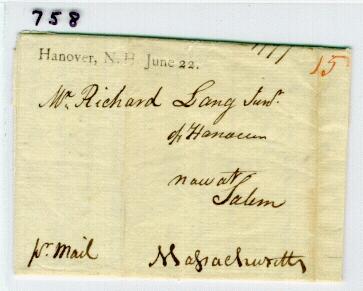 758
Hanover, N.H June 22.
15
Mr. Richard Lang Junr.
of Hanover
now at
Salem
pr. Mail
Massachusetts